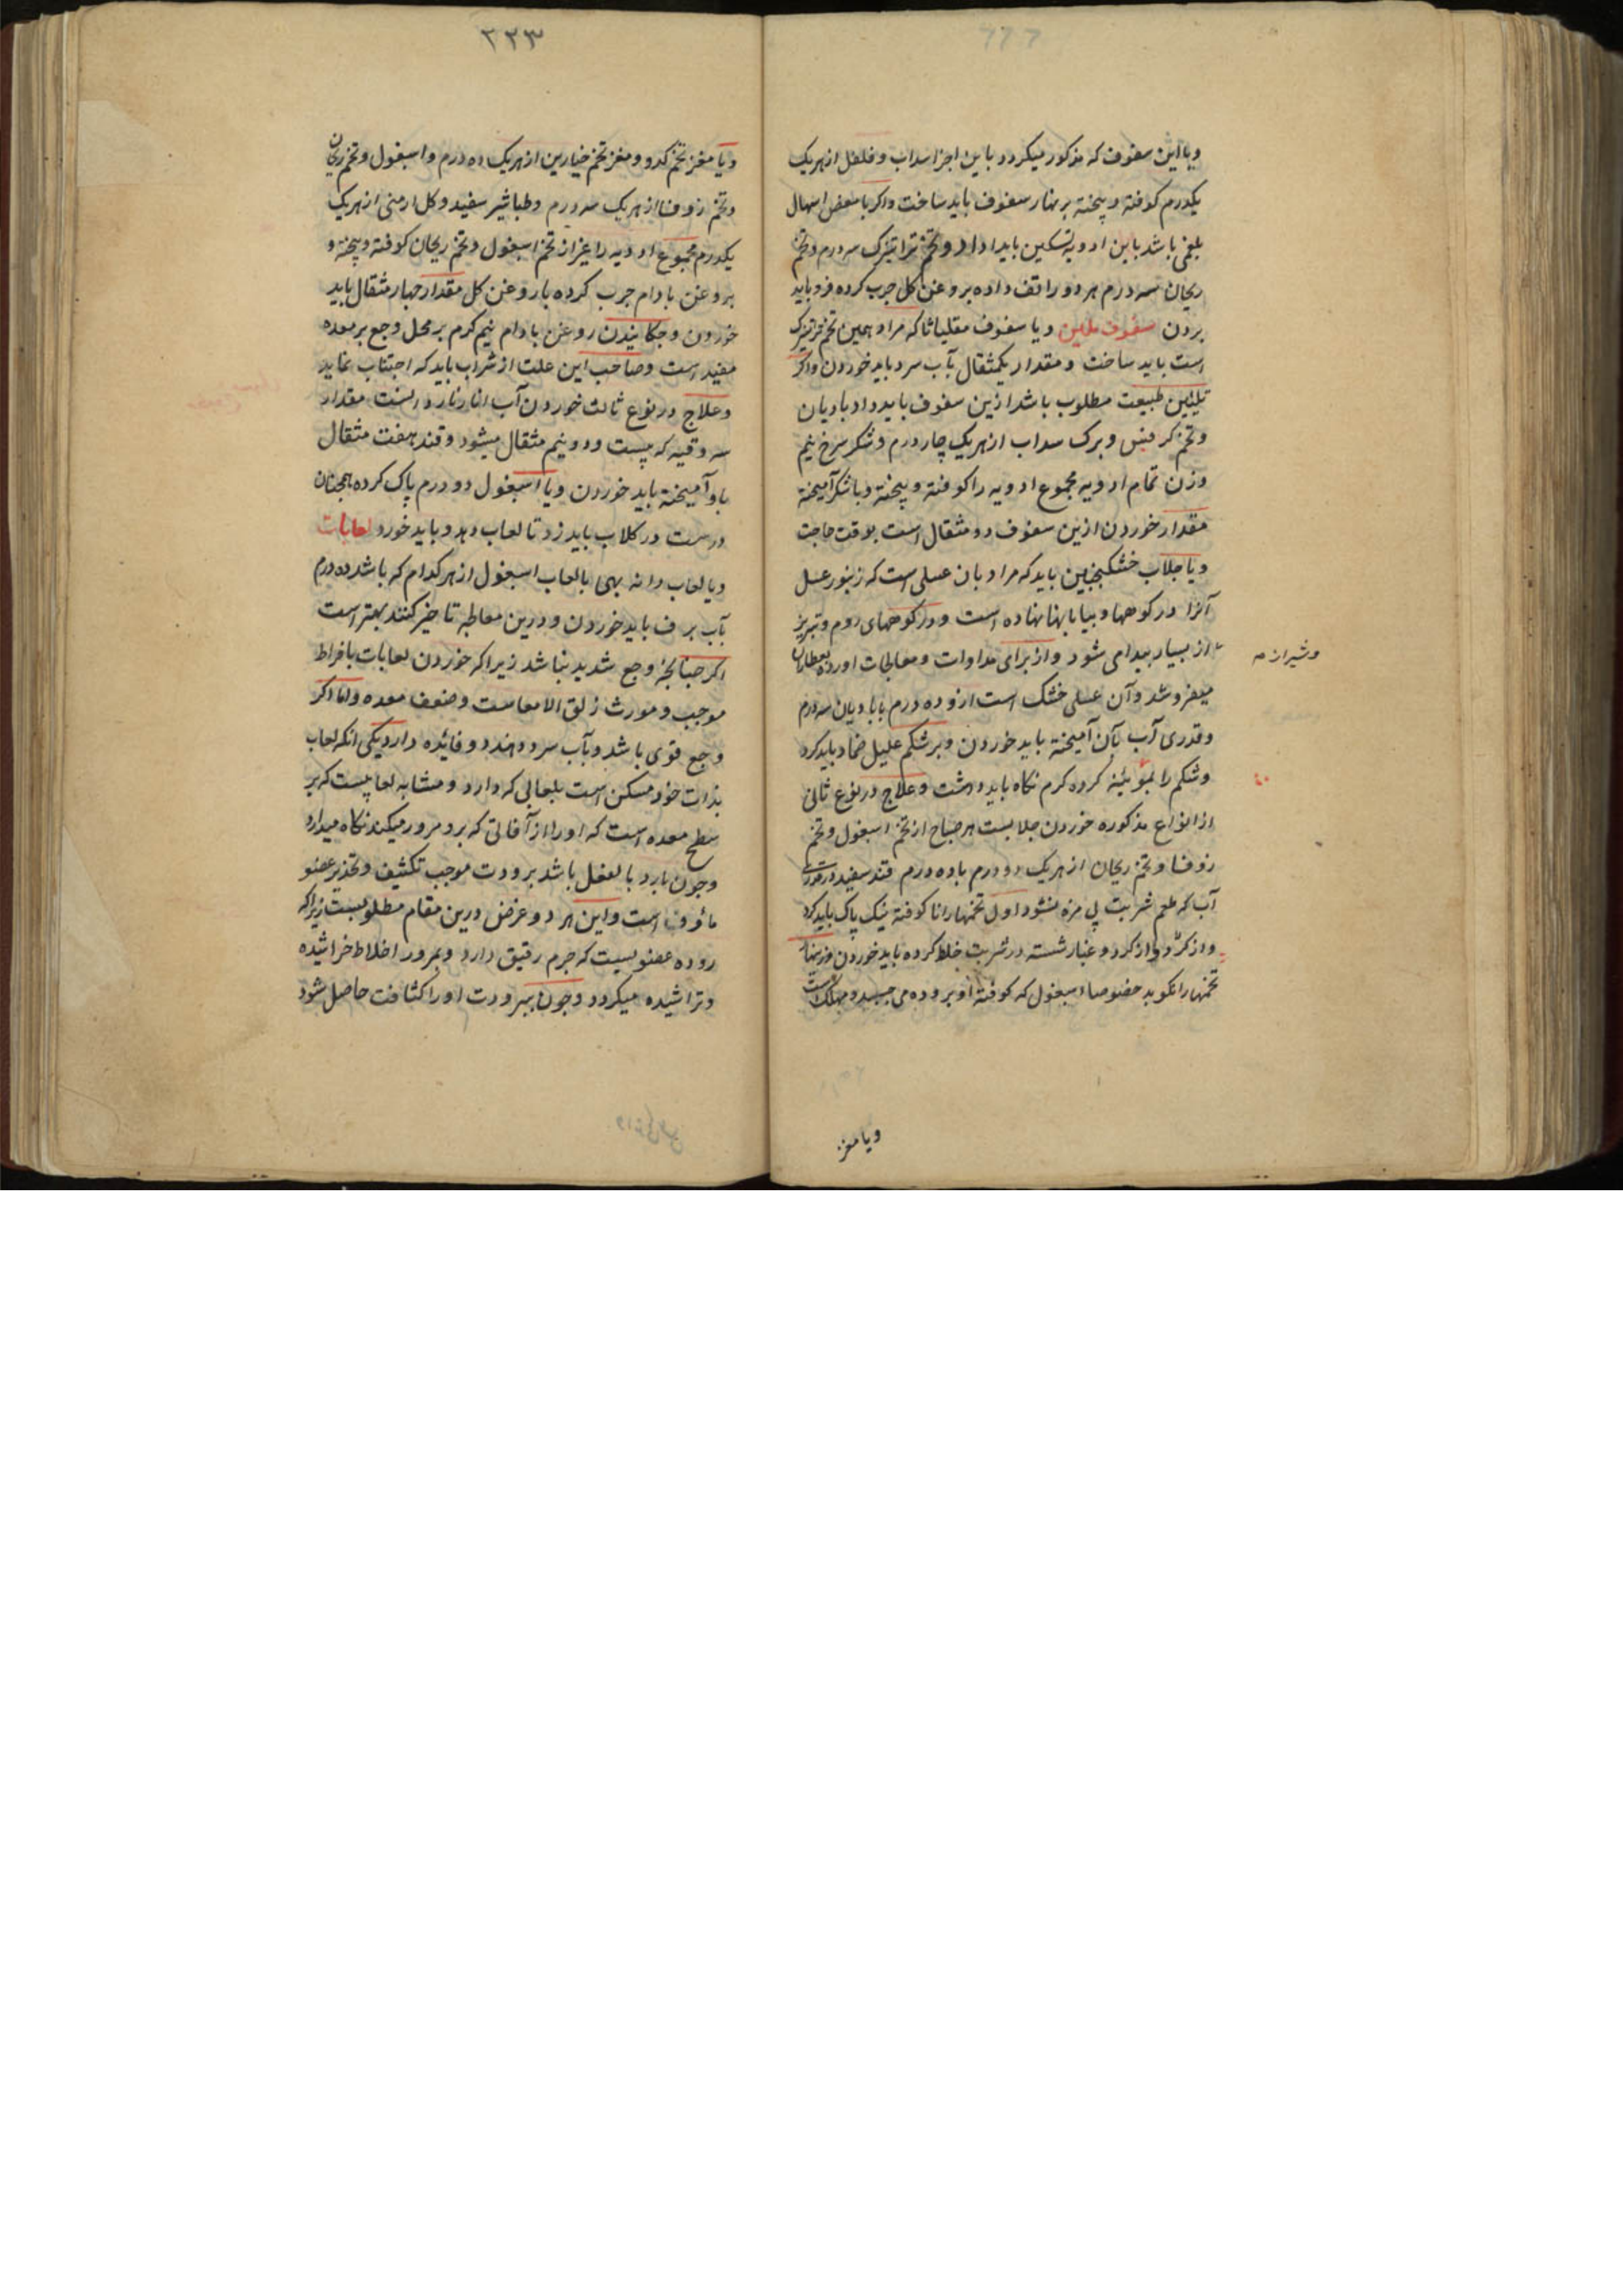 ویا این سفوف که مذکور میکردد باین اجزا سداب و فلفل از هریک
یکدرم کوفته و پیخته بر نهار سفوف باید ساخت و اکر با مغص اسهال
بلغمی باشد باین ادویه تسکین باید داد و تخم تراتیزک سه درم و تخم
ریحان سه درم هر دو را تف داده بروغن کل چرب کرده فرو باید
بردن سفوف ملین ویا سفوف مقلیاثا که مراد همین تخم تراتیزک
است باید ساخت و مقدار یکمثقال بآب سرد باید خوردن و اکر
تلیین طبیعت مطلوب باشد ازین سفوف باید داد بادیان
و تخم کرفس و برک سداب از هریک چار درم و شکر سرخ نیم
وزن تمام ادویه مجموع ادویه را کوفته و پیخته و باشکر آمیخته
مقدار خوردن ازین سفوف دو مثقال است بوقت حاجت
ویا جلاب خشکنجبین باید که مراد بان عسلی است که زنبور عسل
آنرا در کوهها و بیابانها نهاده است و در کوههای روم و تبریز
وشیراز
از بسیار پیدا می شود و از برای مداوات و معالجات آورده بعطاران
میفروشد و آن عسلی خشک است ازو ده درم با بادیان سه درم
و قدری آب بآن آمیخته باید خوردن و بر شکم علیل ضماد باید کرد
و شکم را کرده کرم نکاه باید داشت و علاج در نوع ثانی
از انواع مذکوره خوردن جلابست هر صباح از تخم اسبغول و تخم
زوفا و تخم ریحان از هریک دو درم با ده درم قند سفید در قدری
آب که طعم شربت بی مزه نشود اول تخمها را ناکوفته نیک پاک باید کرد
و از کرد و غبار شسته در شربت خلط کرده باید خوردن و زینهار
تخمها را نکوبد خصوصا اسبغول که کوفته او بروده می چسبد و مهلکست
ویا مغز
۲۳۳
ویا مغز تخم کدو و مغز تخم خیارین از هریک ده درم و اسبغول و تخم ریحان
و تخم زوفا از هریک سه درم و طباشیر سفید و کل ارمنی از هریک
یکدرم مجموع ادویه را غیر از تخم اسبغول و تخم ریحان کوفته و پیخته و
بروغن بادام چرب کرده با روغن کل مقدار چهار مثقال باید
خوردن و چکانیدن روغن بادام نیم کرم بر محل وجع بر معده
مفید است و صاحب این علت از شراب باید که اجتناب نماید
و علاج در نوع ثالث خوردن آب انار مقدار
سه وقیه که بیست و دو نیم مثقال میشود و قند هفت مثقال
باو آمیخته باید خوردن ویا اسبغول دو درم پاک کرده همچنان
درست در کلاب باید زد تا لعاب دهد و باید خورد لعابات
ویا لعاب دانه بهی با لعاب اسبغول از هر کدام که باشد ده درم
بآب برف باید خوردن و درین معاطبه تاخیر کنند بهتر است
اکر چنانچه وجع شدید نباشد زیرا که خوردن لعابات بافراط
موجب و مورث زلق الامعاست و ضعف معده و اما اکر
وجع قوی باشد و بآب سرد دهند دو فائده دارد یکی انکه لعاب
بذات خود مسکن است بلعابی که دارد و مشابه لعابیست که بر
سطح معده است که او را از آفاتی که برو مرور میکنند نکاه میدارد
و چون بارد بالفعل باشد برودت موجب تکثیف و تخذیر عضو
ماؤف است و این هر دو غرض درین مقام مطلوبست زیرا که
روده عضویست که جرم رقیق دارد و بمرور اخلاط خراشیده
و تراشیده میکردد و چون ببرودت او را کثافت حاصل شود